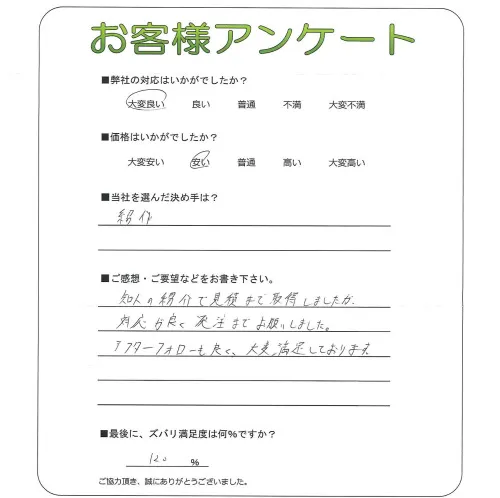 お客様アンケート
■弊社の対応はいかがでしたか？
大変良い 良い 普通 不満 大変不満
■価格はいかがでしたか？
大変安い 安い 普通 高い 大変高い
■当社を選んだ決め手は？
紹介
■ご感想・ご要望などをお書き下さい。
知人の紹介で見積まで取得しましたが、
対応が良く発注までお願いしました。
アフターフォローも良く、大変満足しております。
■最後に、ズバリ満足度は何%ですか？
120 %
ご協力頂き、誠にありがとうございました。